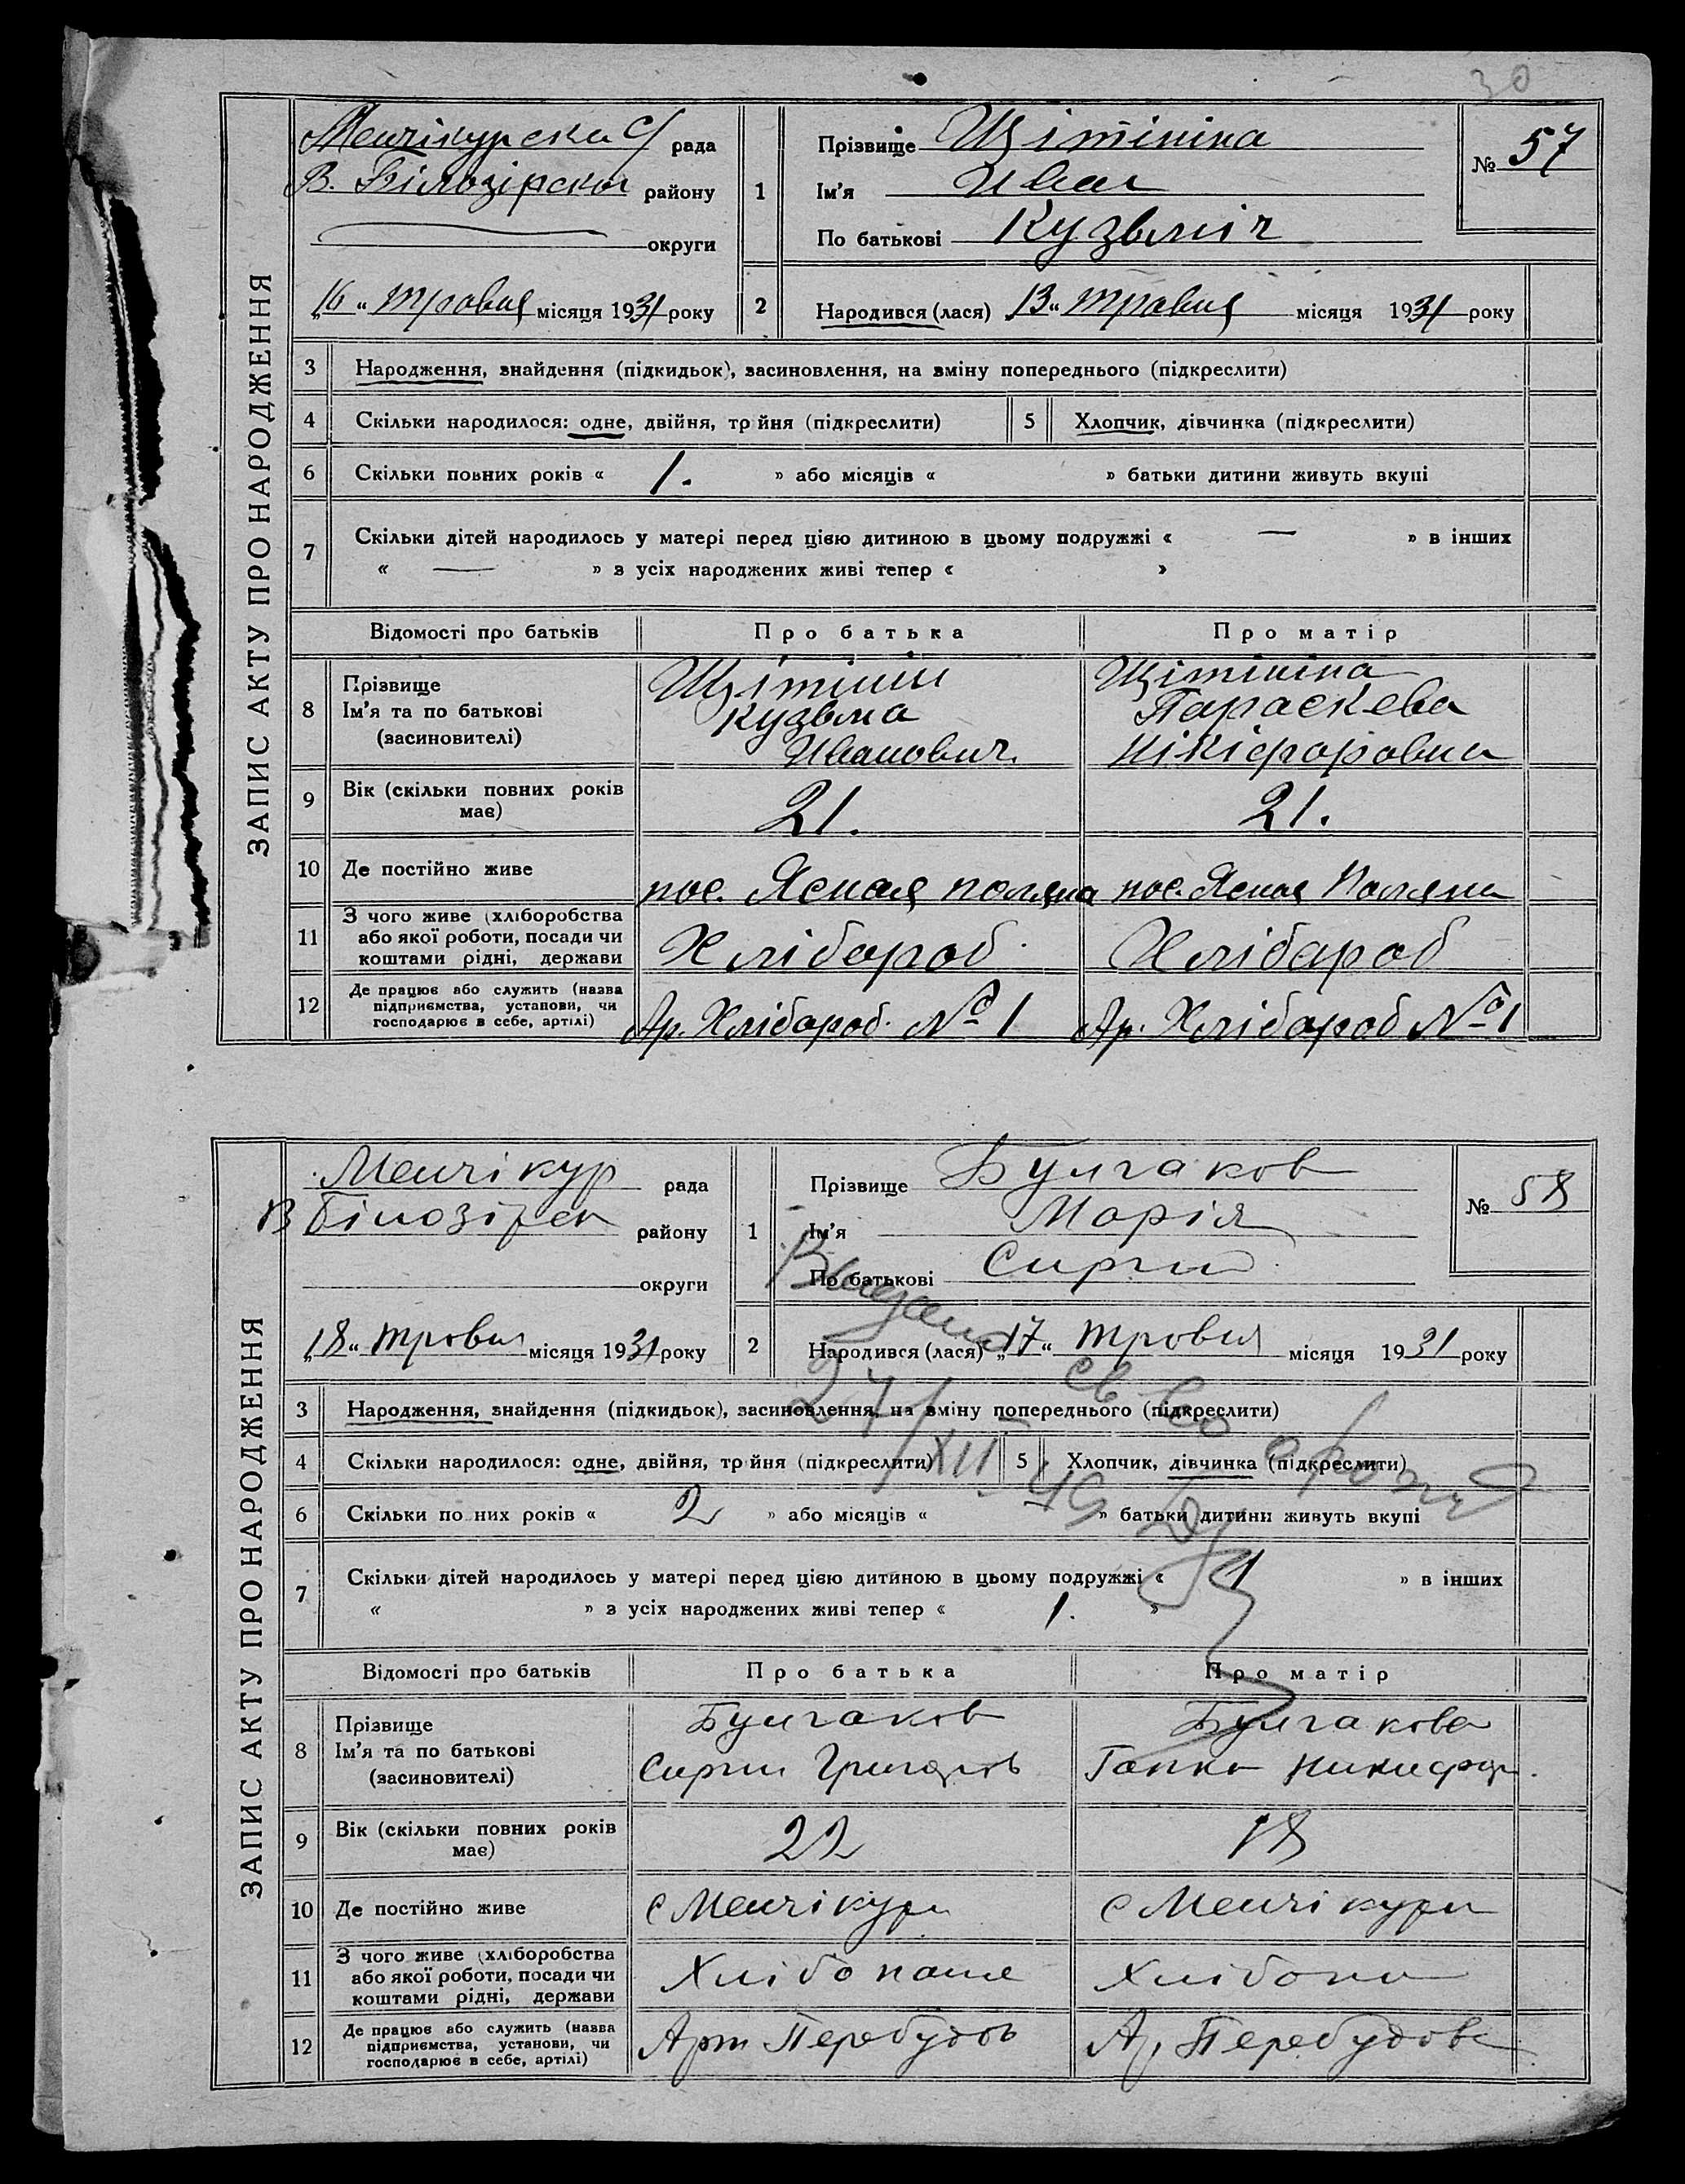 30
ЗАПИС АКТУ ПРО НАРОДЖЕННЯ
Менчікурска С/ рада
В. Білозірског району
округи
„16“ травня місяця 1931 року
1
Прізвище Щітініна
Ім'я Иван
По батькові Кузьміч
№ 57
2
Народився (лася) 13“ травня місяця 1931 року
3 Народження, знайдення (підкидьок), засиновлення, на зміну попереднього (підкреслити)
4 Скільки народилося: одне, двійня, тр йня (підкреслити) 5 Хлопчик, дівчинка (підкреслити)
6 Скільки повних років « 1. » або місяців « » батьки дитини живуть вкупі
7 Скільки дітей народилось у матері перед цією дитиною в цьому подружжі « — » в інших
« — » з усіх народжених живі тепер « »
Відомості про батьків Про батька Про матір
8 Прізвище Ім'я та по батькові (засиновителі)
Щітінін Кузьма Иванович.
Щітініна Параскева Нікіфоровна
9 Вік (скільки повних років має) 21. 21.
10 Де постійно живе пос. Ясная поляна пос. Ясная Поляна
11 З чого живе (хліборобства або якої роботи, посади чи коштами рідні, держави
Хлібароб Хлібароб
12 Де працює або служить (назва підприємства, установи, чи господарює в себе, артілі)
Ар. Хлібароб. № 1 Ар. Хлібароб № 1
ЗАПИС АКТУ ПРО НАРОДЖЕННЯ
Менчікур рада
В Білозірск району
округи
„18“ травня місяця 1931 року
1
Прізвище Булгаков
Ім'я Марія
По батькові Сиргии
№ 58
2
Народився (лася) „17“ травня місяця 1931 року
Видано
27/XII-49
св во
3 Народження, знайдення (підкидьок), засиновлення, на зміну попереднього (підкреслити)
4 Скільки народилося: одне, двійня, тр йня (підкреслити) 5 Хлопчик, дівчинка (підкреслити)
6 Скільки по них років « 2 » або місяців « » батьки дитини живуть вкупі
7 Скільки дітей народилось у матері перед цією дитиною в цьому подружжі « 1 » в інших
« » з усіх народжених живі тепер « 1. »
Відомості про батьків Про батька Про матір
8 Прізвище Ім'я та по батькові (засиновителі)
Булгаков Сиргии Григоров
Булгакова Ганна Никифор.
9 Вік (скільки повних років має) 22 18
10 Де постійно живе с Менчікури с Менчікури
11 З чого живе (хліборобства або якої роботи, посади чи коштами рідні, держави
Хлібопаше Хлібопа
12 Де працює або служить (назва підприємства, установи, чи господарює в себе, артілі)
Арт Перебудов Ар Перебудова